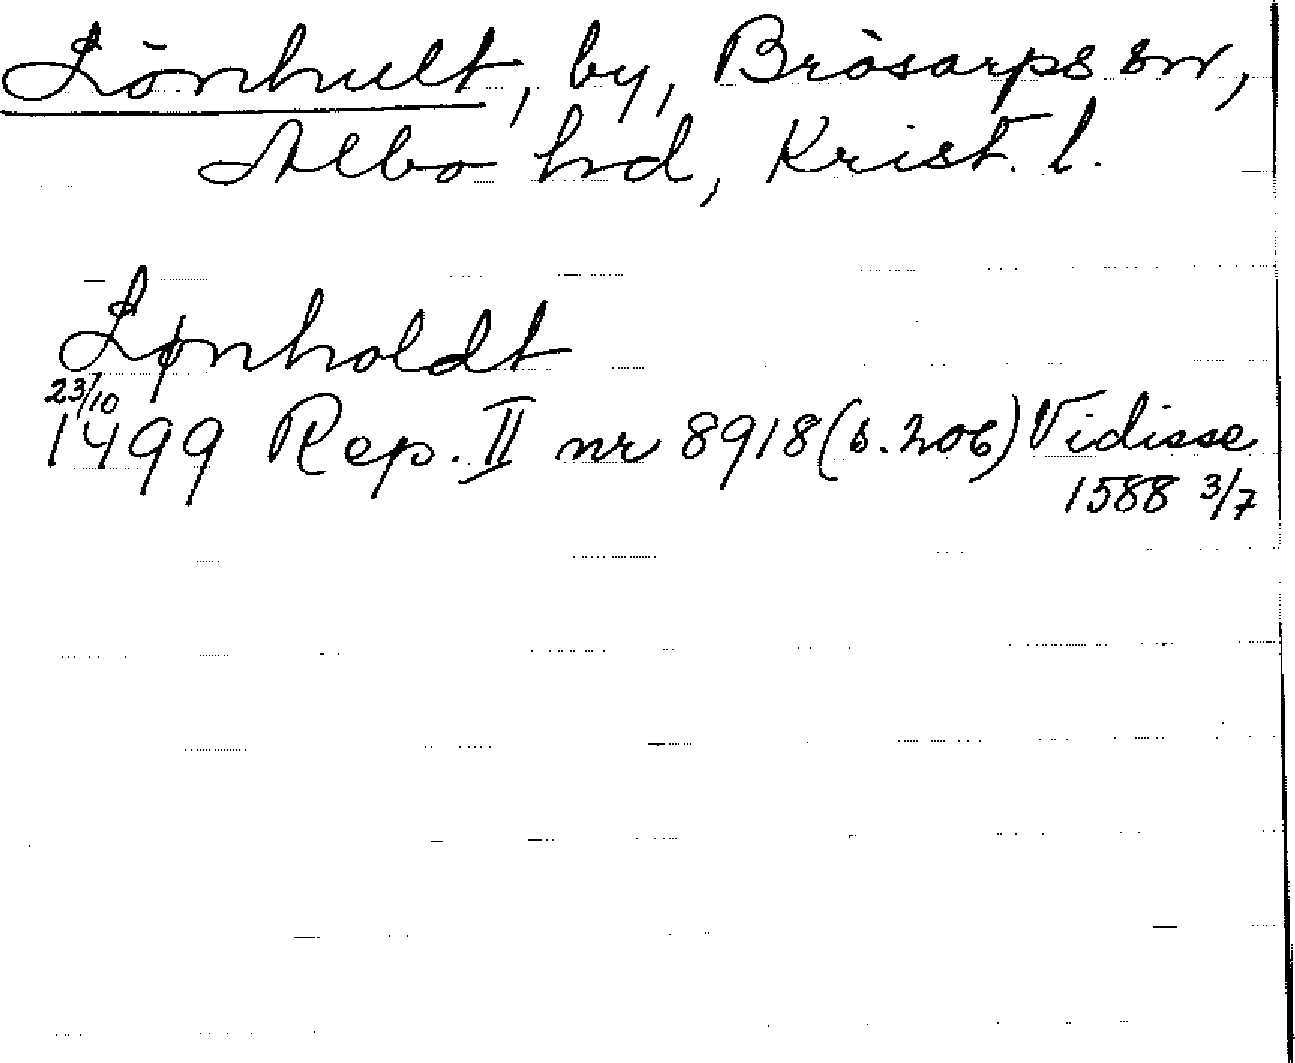 Lönhult, by, Brösarps sn,
Albo hd, Krist. l.
Lønholdt
23/10
1499 Rep. II nr 8918 (s. 206) Vidisse
1588 3/7